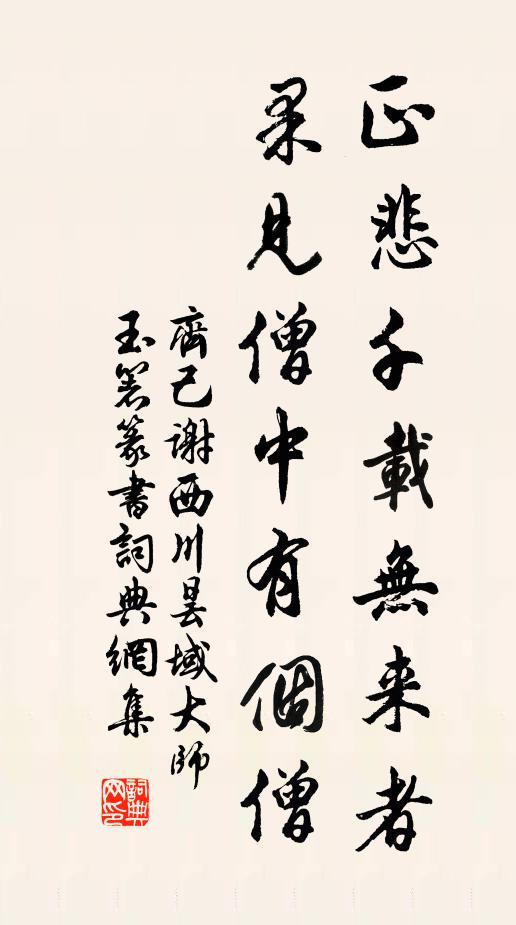 正悲千載無来者
果見僧中有個僧
齊己謝西川曇域大師
玉箸篆書詞典網集
詞典网印